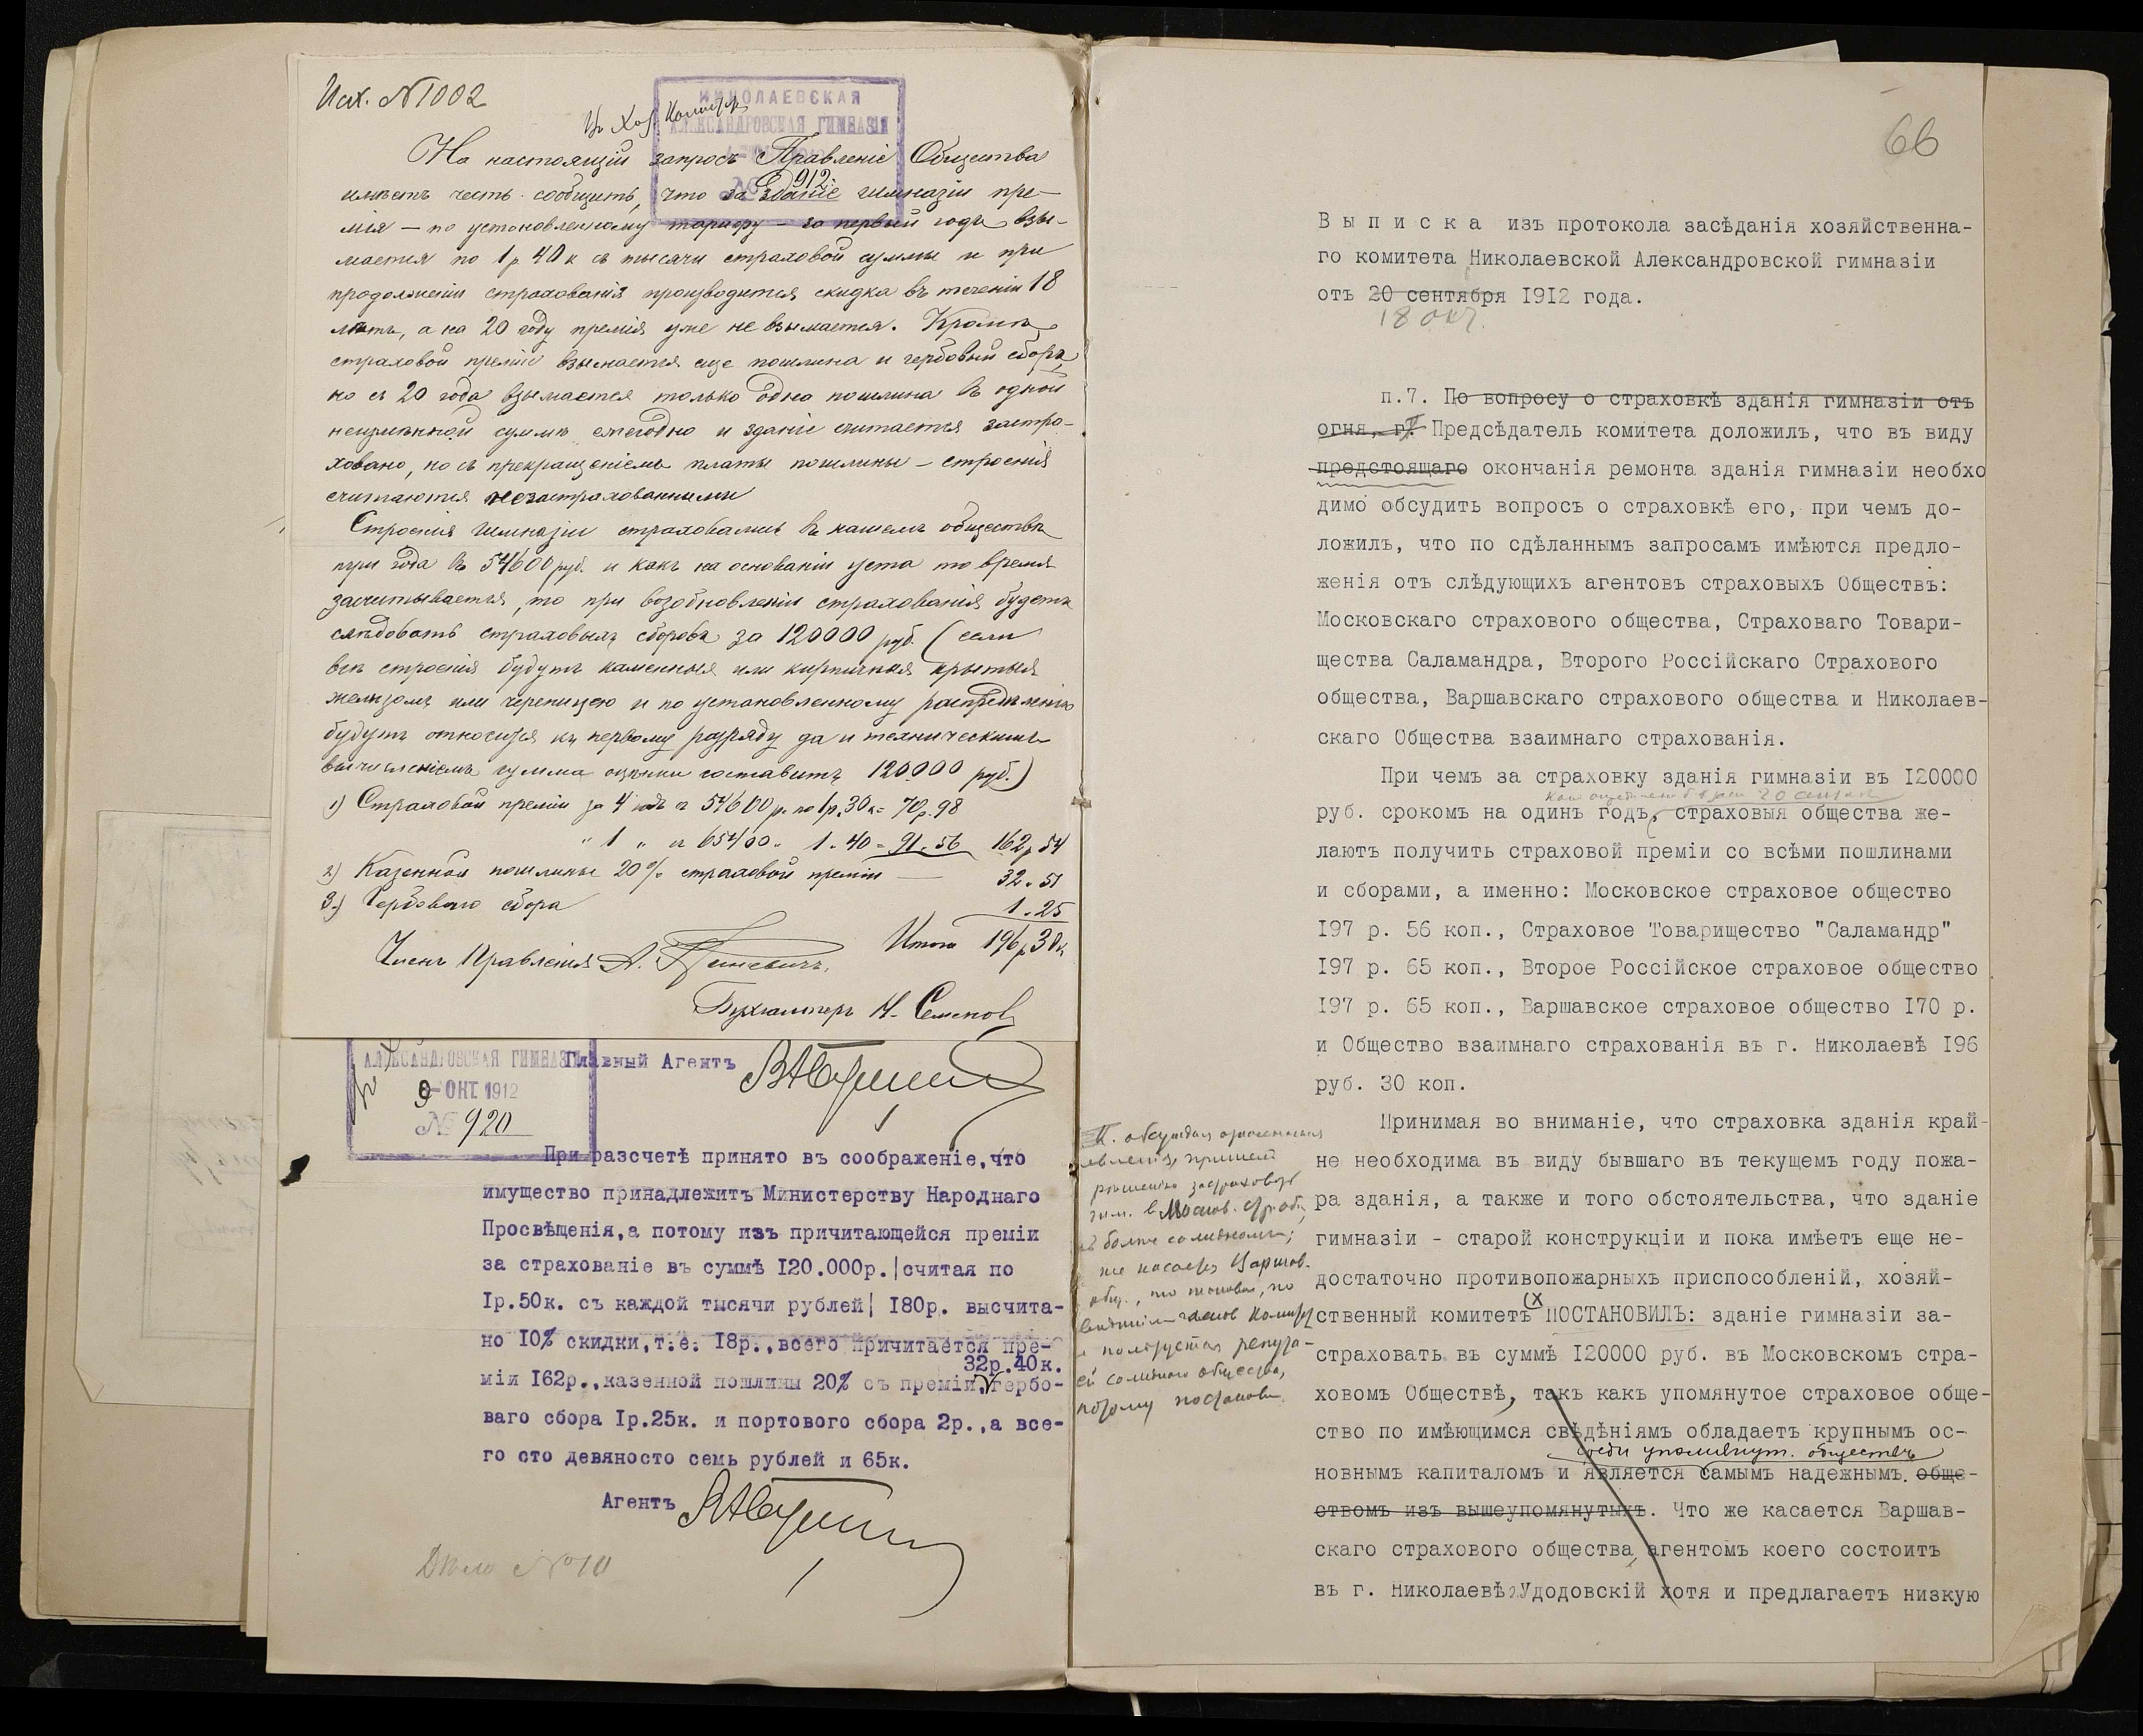 Исх. №1002
Въ Хоз. Комитетъ
НИКОЛАЕВСКАЯ
АЛЕКСАНДРОВСКАЯ ГИМНАЗІЯ
№ 912
На настоящій запросъ Правленіе Общества
имѣетъ честь сообщить, что за зданіе гимназіи пре-
мія — по установленному тарифу — за первый годъ взы-
мается по 1 р 40 к съ тысячи страховой суммы и при
продолженіи страхованія производится скидка въ теченіи 18
лѣтъ, а на 20 году премія уже не взымается. Кромѣ
страховой преміи взымается еще пошлина и гербовый сборъ,
но съ 20 года взымается только одна пошлина въ одной
неизмѣнной суммѣ ежегодно и зданіе считается застра-
ховано, но съ прекращеніемъ платы пошлины — строенія
считаются незастрахованными
Строенія гимназіи страховались въ нашемъ обществѣ
три года въ 54600 руб. и какъ на основаніи уста то время
засчитывается, то при возобновленіи страхованія будетъ
слѣдовать страховыхъ сборовъ за 120000 руб. (если
всѣ строенія будутъ каменныя или кирпичныя крытыя
желѣзомъ или черепицею и по установленному распредѣленію
будутъ относится къ первому разряду да и техническимъ
вычисленіемъ сумма оцѣнки составитъ 120.000 руб.)
1) Страховой преміи за 4 годъ съ 54600 р. по 1р.30к= 70р.98
" 1 " съ 65400 " 1.40 = 91.56 162р54
2) Казенной пошлины 20% страховой преміи — 32.51
3.) Гербоваго сбора 1.25
Итого 196р30к
Членъ Правленія А.
Бухгалтеръ Н. Семенов
АЛЕКСАНДРОВСКАЯ ГИМНАЗІЯ
Главный Агентъ
9-ОКТ 1912
№ 920
При разсчетѣ принято въ соображеніе,что
имущество принадлежитъ Министерству Народнаго
Просвѣщенія,а потому изъ причитающейся преміи
за страхованіе въ суммѣ I20.000р./считая по
Iр.50к. съ каждой тысячи рублей/ I80р. высчита-
но I0% скидки,т.е. I8р.,всего причитается пре-
32р.40к.
міи I62р.,казенной пошлины 20% съ преміи,гербо-
ваго сбора Iр.25к. и портового сбора 2р.,а все-
го сто девяносто семь рублей и 65к.
Агентъ
Дѣло №10
66
В ы п и с к а изъ протокола засѣданія хозяйственна-
го комитета Николаевской Александровской гимназіи
отъ 20 сентября I9I2 года.
18 окт.
п.7. По вопросу о страховкѣ зданія гимназіи отъ
огня, г. Предсѣдатель комитета доложилъ, что въ виду
предстоящаго окончанія ремонта зданія гимназіи необхо
димо обсудить вопросъ о страховкѣ его, при чемъ до-
ложилъ, что по сдѣланнымъ запросамъ имѣются предло-
женія отъ слѣдующихъ агентовъ страховыхъ Обществъ:
Московскаго страхового общества, Страховаго Товари-
щества Саламандра, Второго Россійскаго Страхового
общества, Варшавскаго страхового общества и Николаев-
скаго Общества взаимнаго страхованія.
При чемъ за страховку зданія гимназіи въ I20000
руб. срокомъ на одинъ годъ, страховыя общества же-
лаютъ получить страховой преміи со всѣми пошлинами
и сборами, а именно: Московское страховое общество
I97 р. 56 коп., Страховое Товарищество "Саламандр"
I97 р. 65 коп., Второе Россійское страховое общество
I97 р. 65 коп., Варшавское страховое общество I70 р.
и Общество взаимнаго страхованія въ г. Николаевѣ I96
руб. 30 коп.
Принимая во вниманіе, что страховка зданія край-
не необходима въ виду бывшаго въ текущемъ году пожа-
ра зданія, а также и того обстоятельства, что зданіе
гимназіи - старой конструкціи и пока имѣетъ еще не-
достаточно противопожарныхъ приспособленій, хозяй-
ственный комитетъ (х ПОСТАНОВИЛЪ: зданіе гимназіи за-
страховать въ суммѣ I20000 руб. въ Московскомъ стра-
ховомъ Обществѣ, такъ какъ упомянутое страховое обще-
ство по имѣющимся свѣдѣніямъ обладаетъ крупнымъ ос-
среди упомянут. обществъ
новнымъ капиталомъ и является самымъ надежнымъ. обще-
ствомъ изъ вышеупомянутыхъ. Что же касается Варшав-
скаго страхового общества, агентомъ коего состоитъ
въ г. Николаевѣ Удодовскій хотя и предлагаетъ низкую